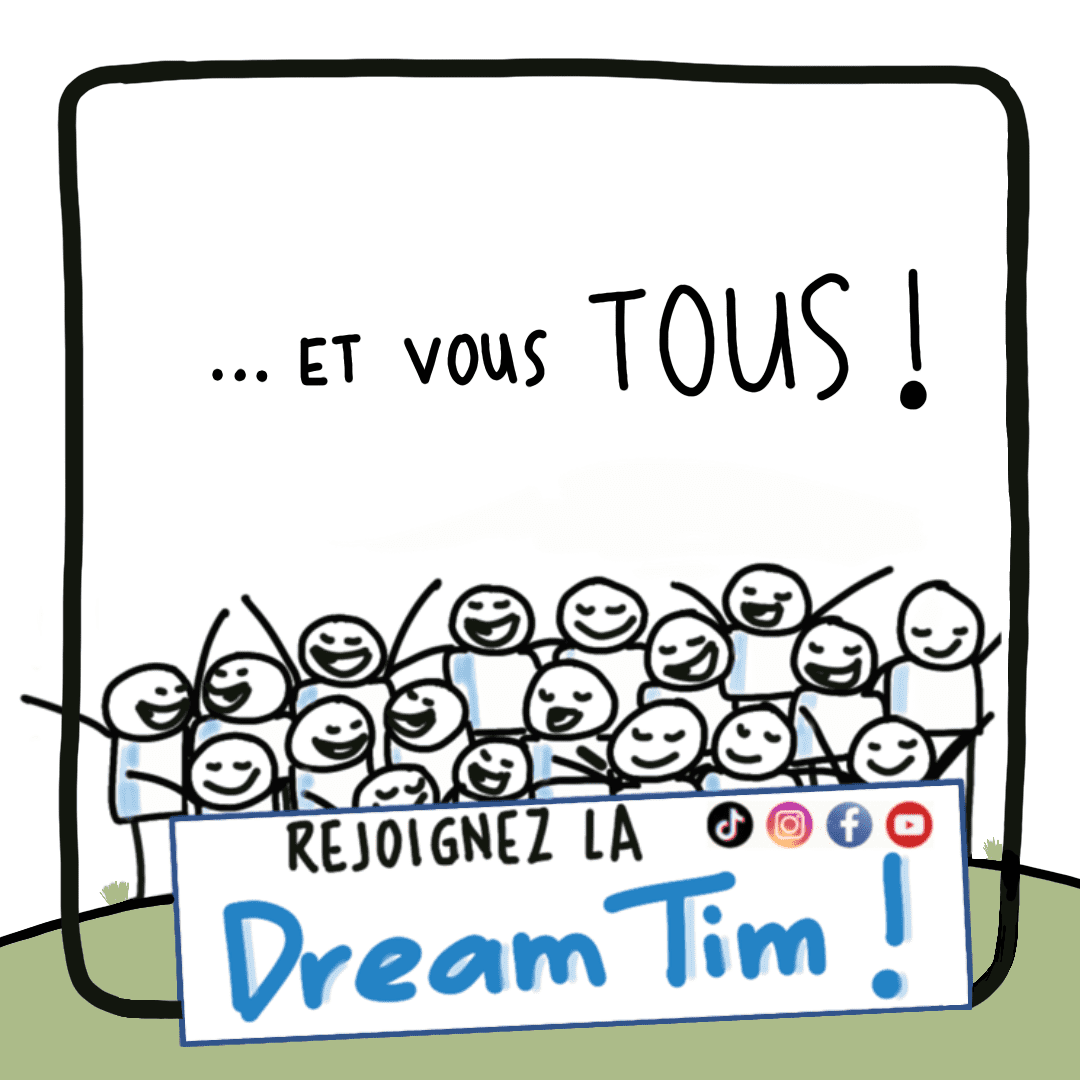 ... ET VOUS TOUS !
REJOIGNEZ LA
Dream Tim !